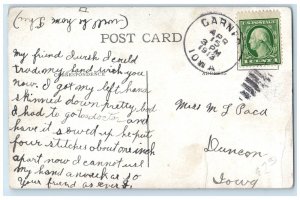 (will be home Thur)
POST CARD
GARNER
APR
15
3 PM
1913
IOWA
my friend I wish I could
trade my hand with you
now. I got my left hand
CORRESPONDENCE
skinned down pretty bad
I had to go to doctor and
have it sowed up he put
four stitches about one inch
apart now I cannot use
my hand a week or so
Your friend as ever
Miss M L
Duncan
Iowa